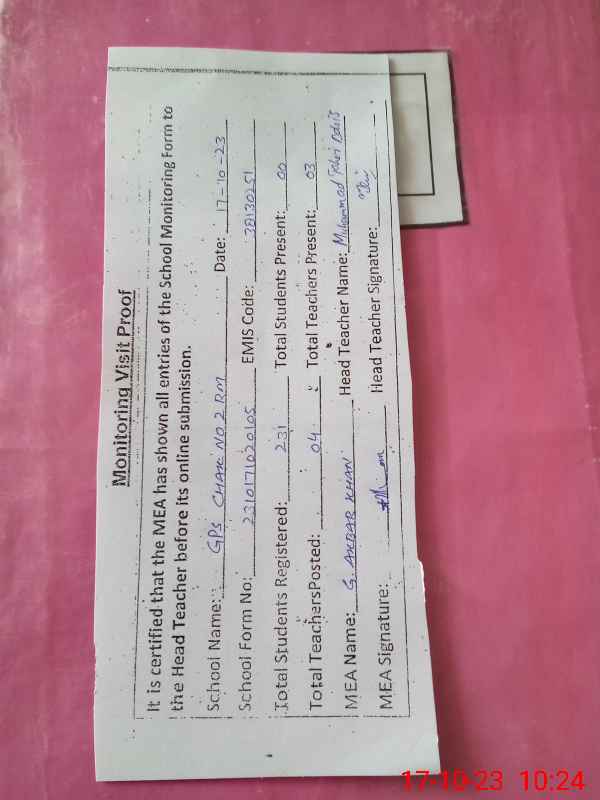 Monitoring Visit Proof
It is certified that the MEA has shown all entries of the School Monitoring Form to
the Head Teacher before its online submission.
School Name: GPS CHAK NO 2 RM Date: 17-10-23
School Form No: 2310171020105 EMIS Code: 38130251
Total Students Registered: 231 Total Students Present: 00
Total TeachersPosted: 04 Total Teachers Present: 03
MEA Name: G. AKBAR KHAN Head Teacher Name: Muhammad
MEA Signature: Head Teacher Signature:
17-10-23 10:24